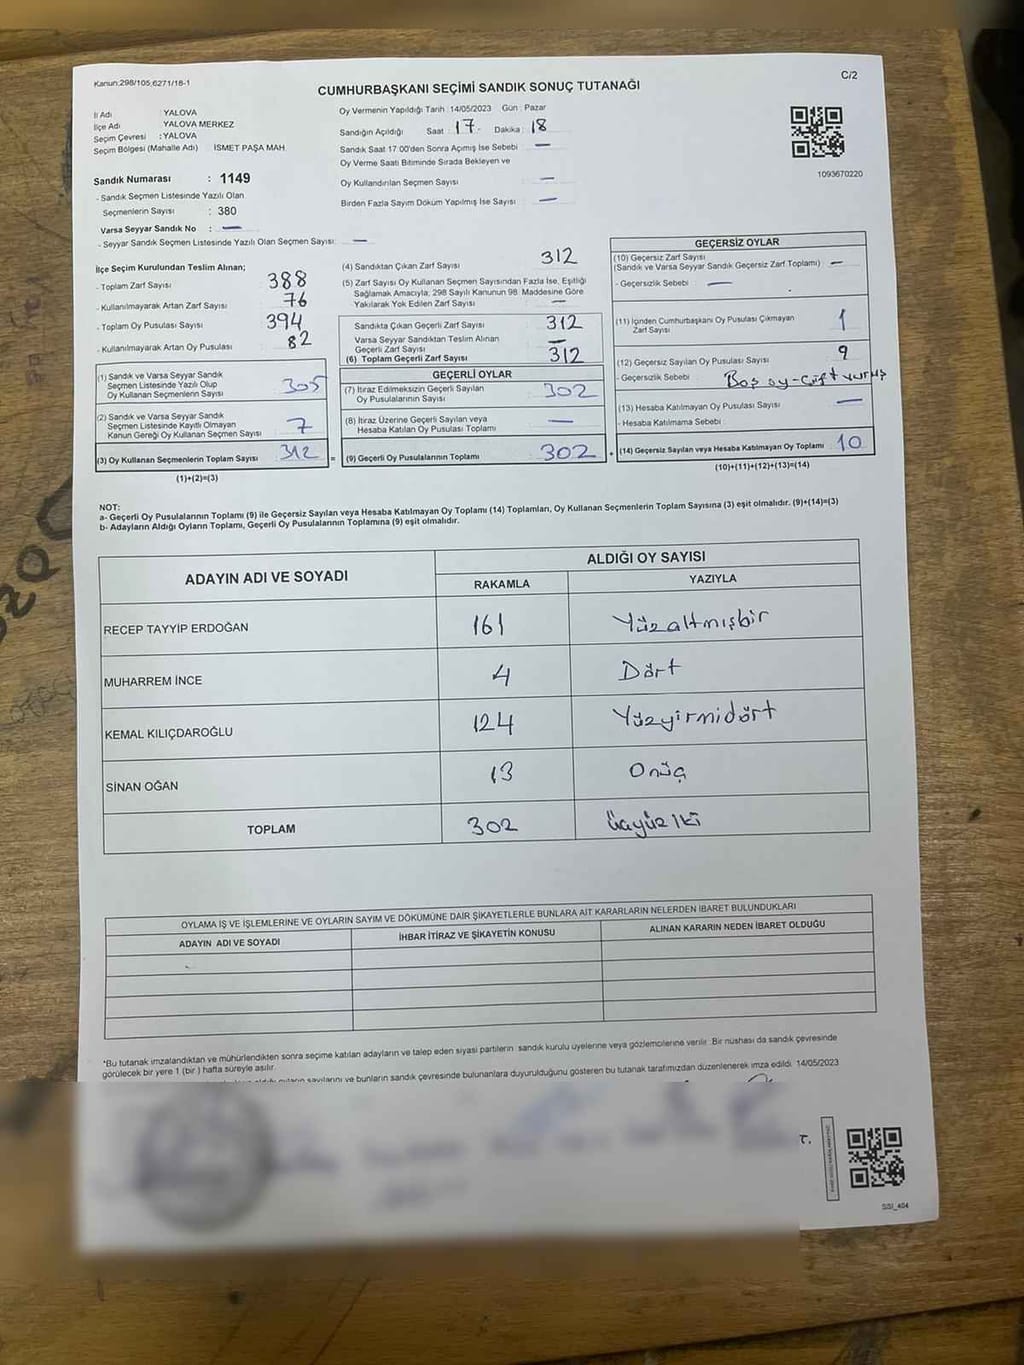 Kanun:298/105,6271/18-1
C/2
CUMHURBAŞKANI SEÇİMİ SANDIK SONUÇ TUTANAĞI
İl Adı YALOVA
İlçe Adı YALOVA MERKEZ
Seçim Çevresi : YALOVA
Seçim Bölgesi (Mahalle Adı) İSMET PAŞA MAH.
Oy Vermenin Yapıldığı Tarih 14/05/2023 Gün : Pazar
Sandığın Açıldığı Saat : 17 Dakika : 18
Sandık Saat 17.00'den Sonra Açımış İse Sebebi —
Oy Verme Saati Bitiminde Sırada Bekleyen ve
Oy Kullandırılan Seçmen Sayısı —
Birden Fazla Sayım Döküm Yapılmış İse Sayısı —
1093670220
Sandık Numarası : 1149
- Sandık Seçmen Listesinde Yazılı Olan
Seçmenlerin Sayısı : 380
Varsa Seyyar Sandık No : —
- Seyyar Sandık Seçmen Listesinde Yazılı Olan Seçmen Sayısı: —
İlçe Seçim Kurulundan Teslim Alınan;
- Toplam Zarf Sayısı 388
- Kullanılmayarak Artan Zarf Sayısı 76
- Toplam Oy Pusulası Sayısı 394
- Kullanılmayarak Artan Oy Pusulası 82
(1) Sandık ve Varsa Seyyar Sandık
Seçmen Listesinde Yazılı Olup
Oy Kullanan Seçmenlerin Sayısı 305
(2) Sandık ve Varsa Seyyar Sandık
Seçmen Listesinde Kayıtlı Olmayan
Kanun Gereği Oy Kullanan Seçmen Sayısı 7
(3) Oy Kullanan Seçmenlerin Toplam Sayısı 312
(1)+(2)=(3)
(4) Sandıktan Çıkan Zarf Sayısı 312
(5) Zarf Sayısı Oy Kullanan Seçmen Sayısından Fazla İse, Eşitliği
Sağlamak Amacıyla; 298 Sayılı Kanunun 98. Maddesine Göre
Yakılarak Yok Edilen Zarf Sayısı —
Sandıkta Çıkan Geçerli Zarf Sayısı 312
Varsa Seyyar Sandıktan Teslim Alınan
Geçerli Zarf Sayısı —
(6) Toplam Geçerli Zarf Sayısı 312
GEÇERLİ OYLAR
(7) İtiraz Edilmeksizin Geçerli Sayılan
Oy Pusulalarının Sayısı 302
(8) İtiraz Üzerine Geçerli Sayılan veya
Hesaba Katılan Oy Pusulası Toplamı —
= (9) Geçerli Oy Pusulalarının Toplamı 302
GEÇERSİZ OYLAR
(10) Geçersiz Zarf Sayısı
(Sandık ve Varsa Seyyar Sandık Geçersiz Zarf Toplamı) —
- Geçersizlik Sebebi —
(11) İçinden Cumhurbaşkanı Oy Pusulası Çıkmayan
Zarf Sayısı 1
(12) Geçersiz Sayılan Oy Pusulası Sayısı 9
- Geçersizlik Sebebi Boş oy-çift vuruş
(13) Hesaba Katılmayan Oy Pusulası Sayısı —
- Hesaba Katılmama Sebebi
+ (14) Geçersiz Sayılan veya Hesaba Katılmayan Oy Toplamı 10
(10)+(11)+(12)+(13)=(14)
NOT:
a- Geçerli Oy Pusulalarının Toplamı (9) ile Geçersiz Sayılan veya Hesaba Katılmayan Oy Toplamı (14) Toplamları, Oy Kullanan Seçmenlerin Toplam Sayısına (3) eşit olmalıdır. (9)+(14)=(3)
b- Adayların Aldığı Oyların Toplamı, Geçerli Oy Pusulalarının Toplamına (9) eşit olmalıdır.
ADAYIN ADI VE SOYADI ALDIĞI OY SAYISI
RAKAMLA YAZIYLA
RECEP TAYYİP ERDOĞAN 161 Yüzaltmışbir
MUHARREM İNCE 4 Dört
KEMAL KILIÇDAROĞLU 124 Yüzyirmidört
SİNAN OĞAN 13 Onüç
TOPLAM 302 üçyüz iki
OYLAMA İŞ VE İŞLEMLERİNE VE OYLARIN SAYIM VE DÖKÜMÜNE DAİR ŞİKAYETLERLE BUNLARA AİT KARARLARIN NELERDEN İBARET BULUNDUKLARI
ADAYIN ADI VE SOYADI İHBAR İTİRAZ VE ŞİKAYETİN KONUSU ALINAN KARARIN NEDEN İBARET OLDUĞU
*Bu tutanak imzalandıktan ve mühürlendikten sonra seçime katılan adayların ve talep eden siyasi partilerin sandık kurulu üyelerine veya gözlemcilerine verilir. Bir nüshası da sandık çevresinde
görülecek bir yere 1 (bir) hafta süreyle asılır.
sayılarını ve bunların sandık çevresinde bulunanlara duyurulduğunu gösteren bu tutanak tarafımızdan düzenlenerek imza edildi. 14/05/2023
T.
SSI_404